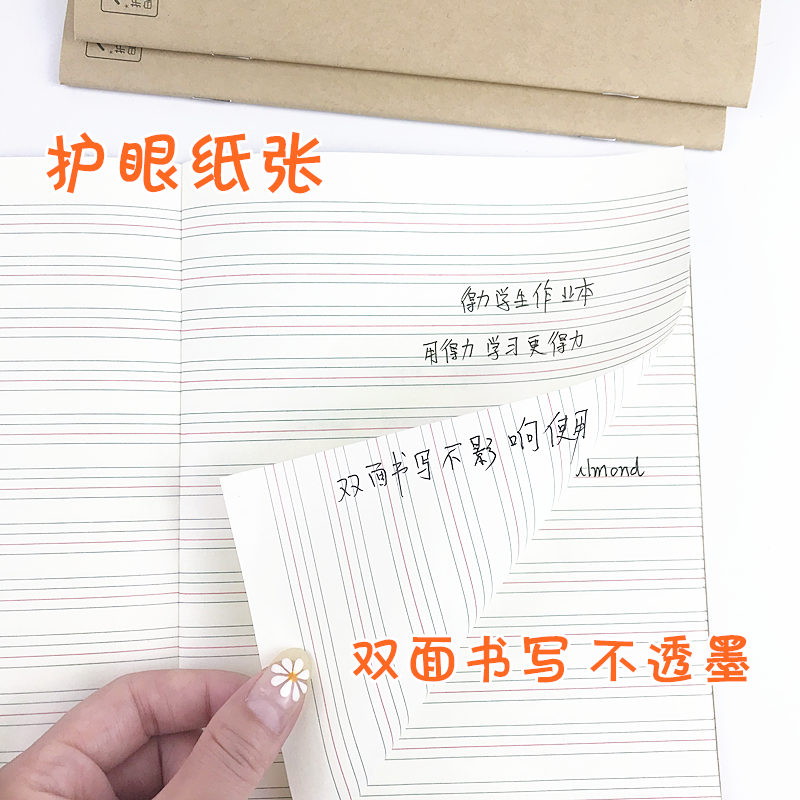 护眼纸张
得力学生作业本
用得力 学习更得力
双面书写不影响使用
almond
双面书写 不透墨